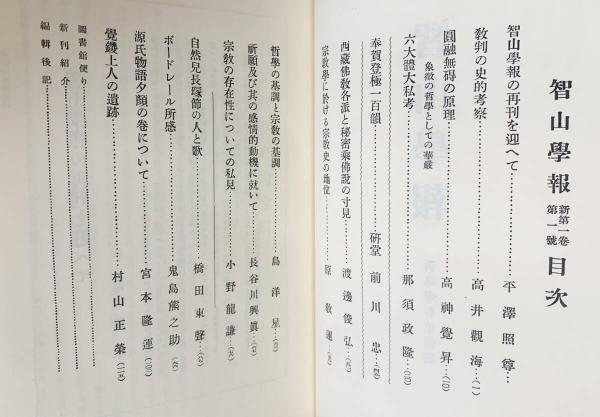 智山學報 新第一卷 第一號 目次
智山學報の再刊を迎へて……平澤照尊…
教判の史的考察……高井觀海…(一)
圓融無碍の原理……高神覺昇…(二〇)
象徵の哲學としての華嚴
六大體大私考……那須政隆…
奉賀登極一百韻……硏堂 前川 忠…
西藏佛教各派と秘密乘佛說の寸見……渡邊俊弘…
宗教學に於ける宗教史の地位……原 教運…
哲學の基調と宗教の基調……島 洋星…
祈願及び其の感情的動機に就いて……長谷川興眞…
宗教の存在性についての私見……小野龍謙…
自然兒長塚節の人と歌……橋田東聲…
ボードレール所感……鬼島熊之助…
源氏物語夕顏の卷について……宮本隆運…
覺鑁上人の遺跡……村山正榮…
圖書館便り
新刊紹介
編輯後記